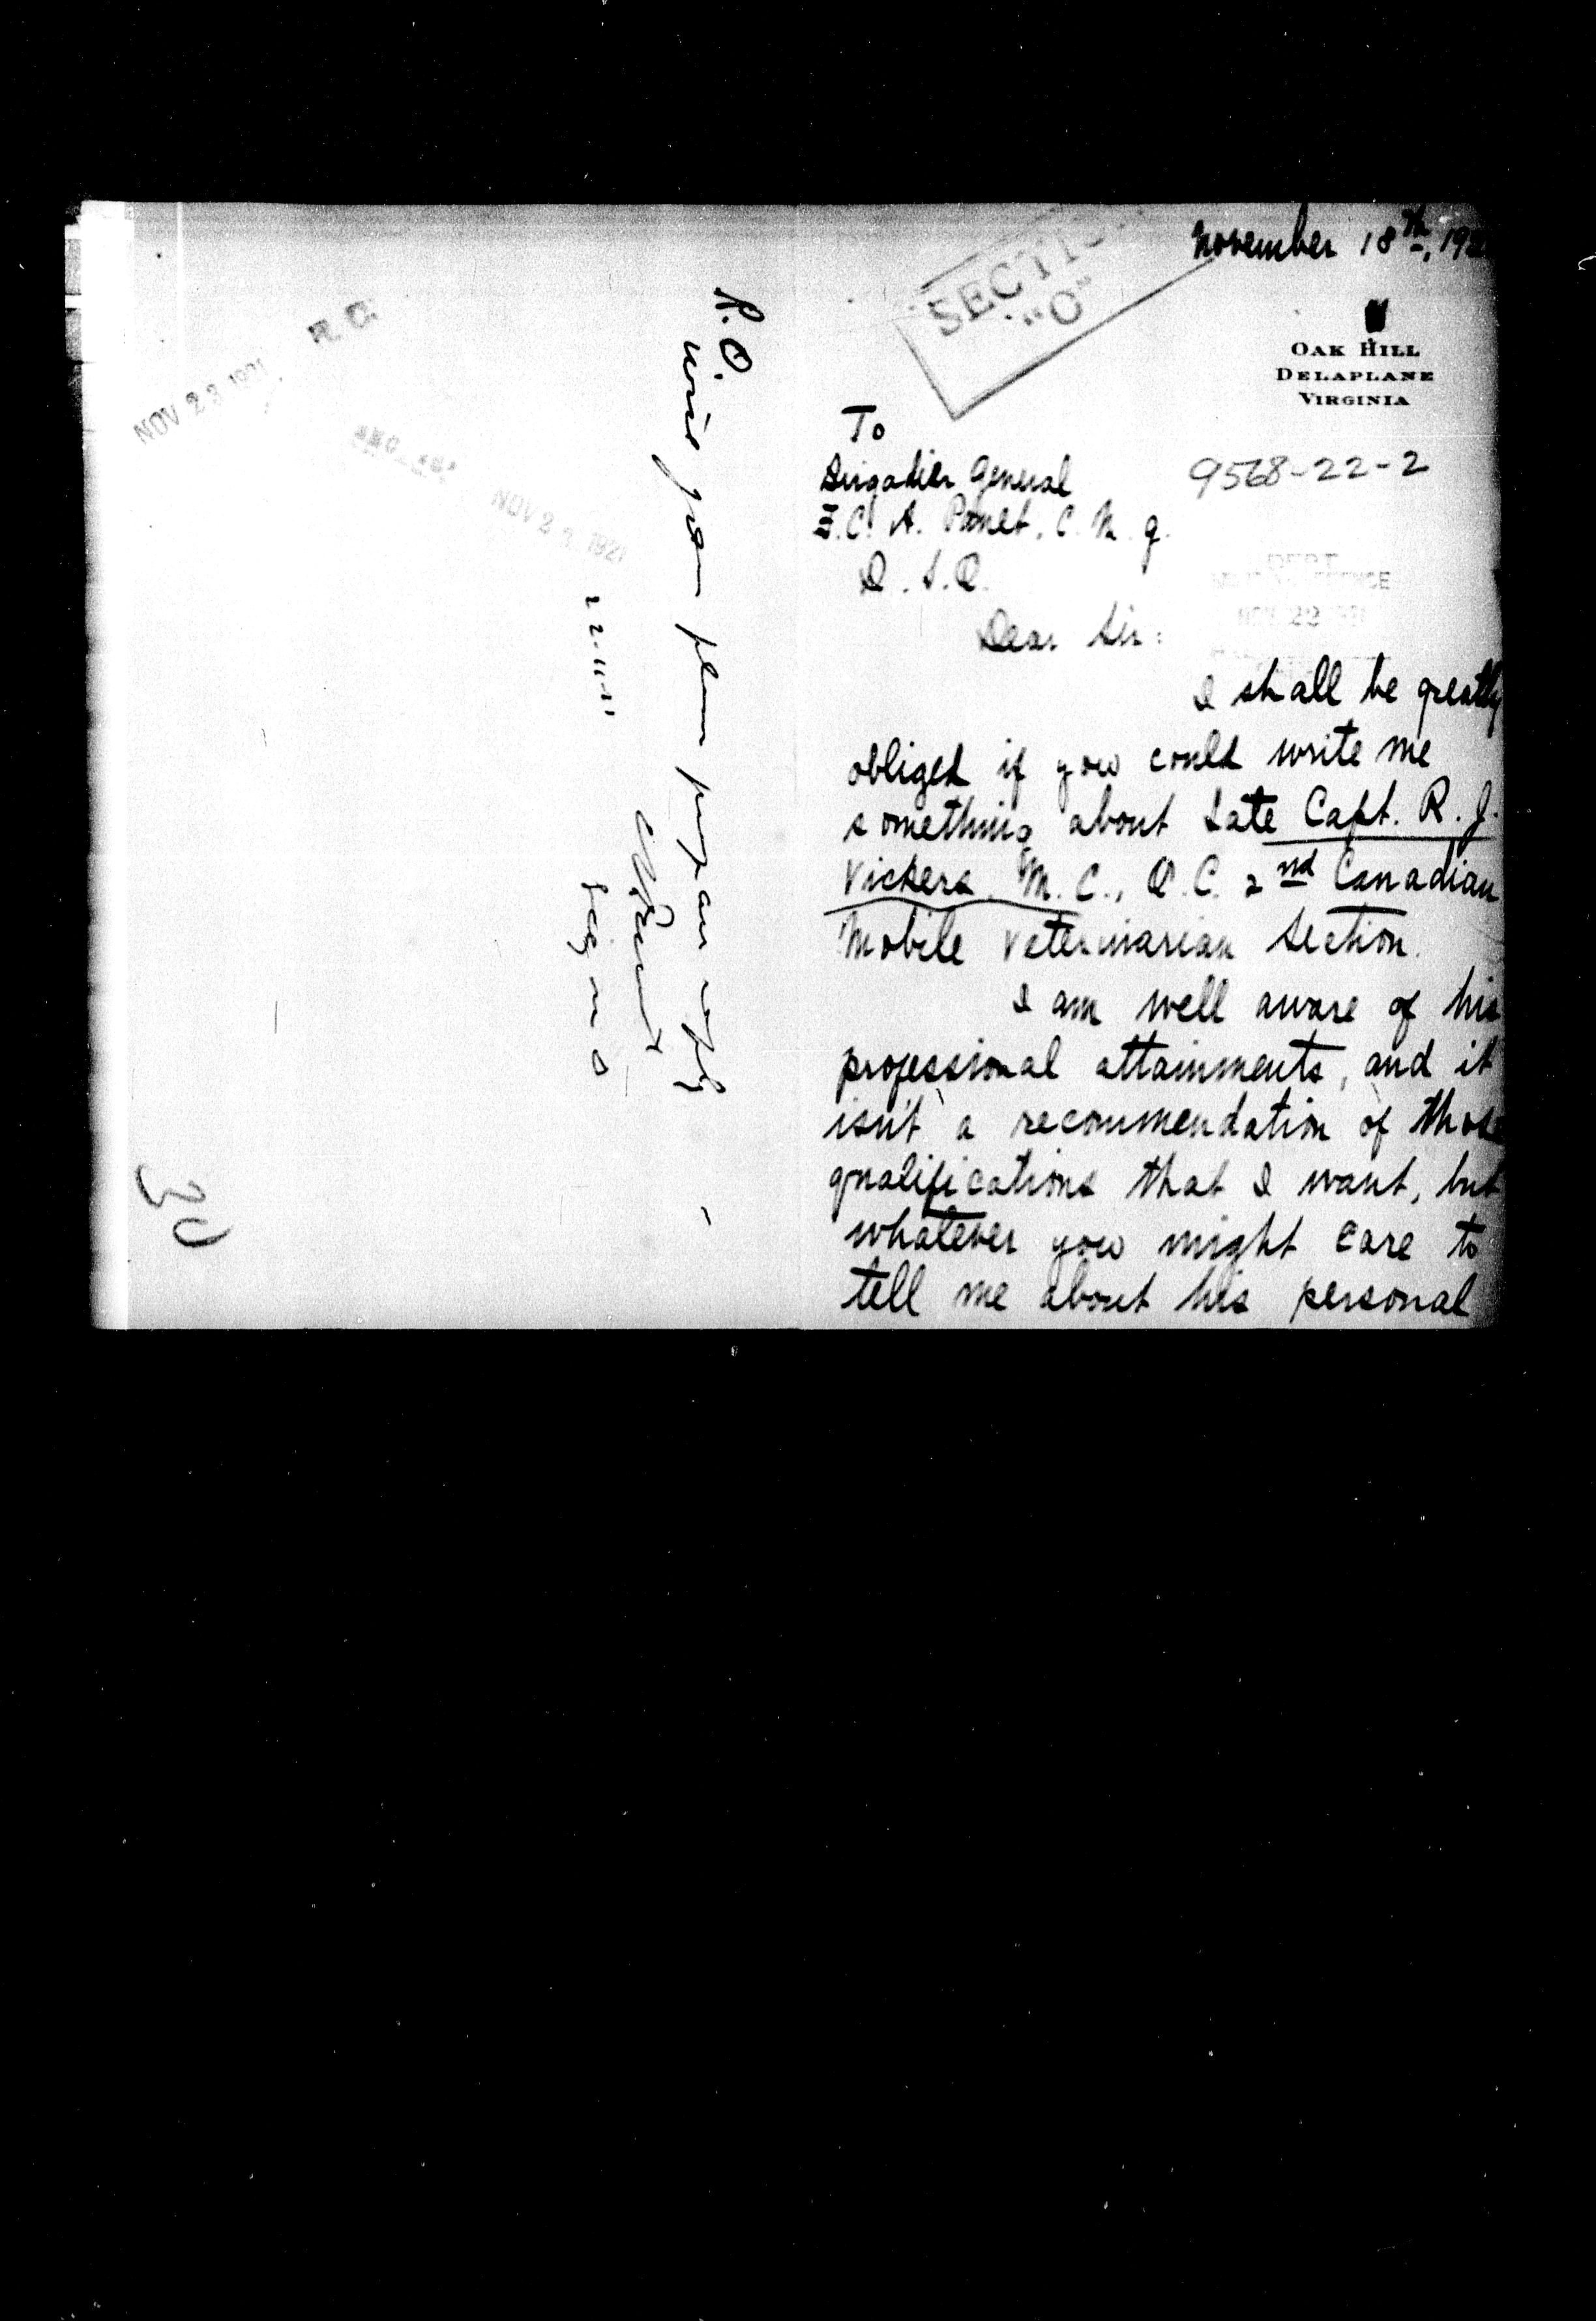 November 18th, 192
SECTIO
"O"
OAK HILL
DELAPLANE
VIRGINIA
To
Brigadier General
E. C. A. Panet, C. M. G.
D. S. O.
9568-22-2
DEPT
NOV 22
Dear Sir:
I shall be greatly
obliged if you could write me
something about Late Capt. R. J.
Vickers. M. C., O. C. 2nd Canadian
Mobile Veterinarian Section.
I am well aware of his
professional attainments, and it
isn't a recommendation of those
qualifications that I want, but
whatever you might care to
tell me about his personal
R. O.
will you please prepare reply
22-11-21
NOV 23 1921
R. O.
NOV 23 1921
30